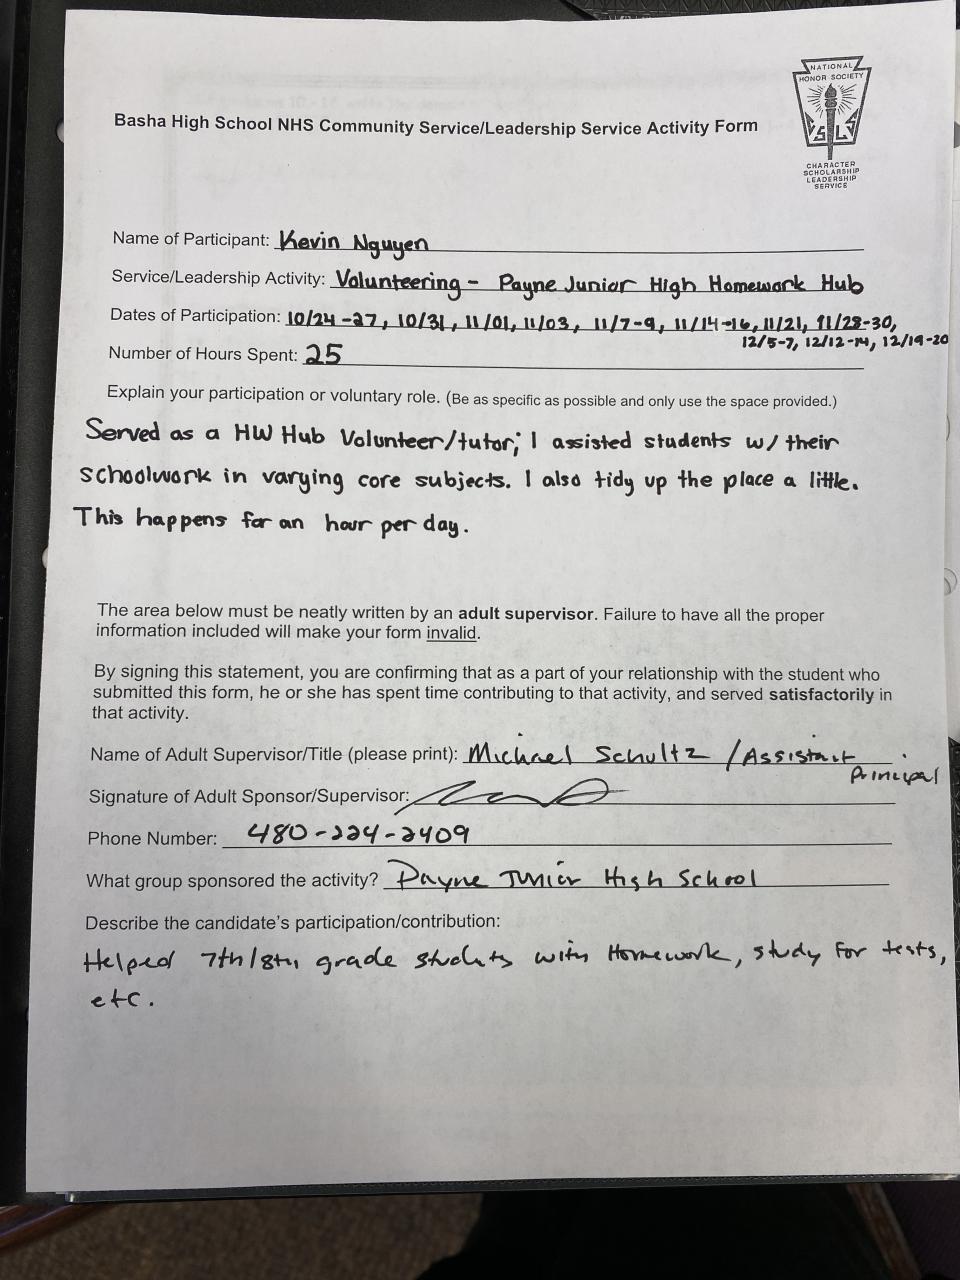 NATIONAL
HONOR SOCIETY
C S L S
CHARACTER
SCHOLARSHIP
LEADERSHIP
SERVICE
Basha High School NHS Community Service/Leadership Service Activity Form
Name of Participant: Kevin Nguyen
Service/Leadership Activity: Volunteering - Payne Junior High Homework Hub
Dates of Participation: 10/24-27, 10/31, 11/01, 11/03, 11/7-9, 11/14-16, 11/21, 11/28-30,
12/5-7, 12/12-14, 12/19-20
Number of Hours Spent: 25
Explain your participation or voluntary role. (Be as specific as possible and only use the space provided.)
Served as a HW Hub Volunteer/tutor; I assisted students w/ their
schoolwork in varying core subjects. I also tidy up the place a little.
This happens for an hour per day.
The area below must be neatly written by an adult supervisor. Failure to have all the proper
information included will make your form invalid.
By signing this statement, you are confirming that as a part of your relationship with the student who
submitted this form, he or she has spent time contributing to that activity, and served satisfactorily in
that activity.
Name of Adult Supervisor/Title (please print): Michael Schultz / Assistant
Principal
Signature of Adult Sponsor/Supervisor:
Phone Number: 480-224-2409
What group sponsored the activity? Payne Junior High School
Describe the candidate's participation/contribution:
Helped 7th/8th grade students with Homework, study for tests,
etc.